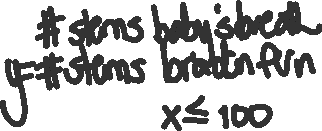 # stems baby's breath
y = # stems brattn furn
x ≤ 100